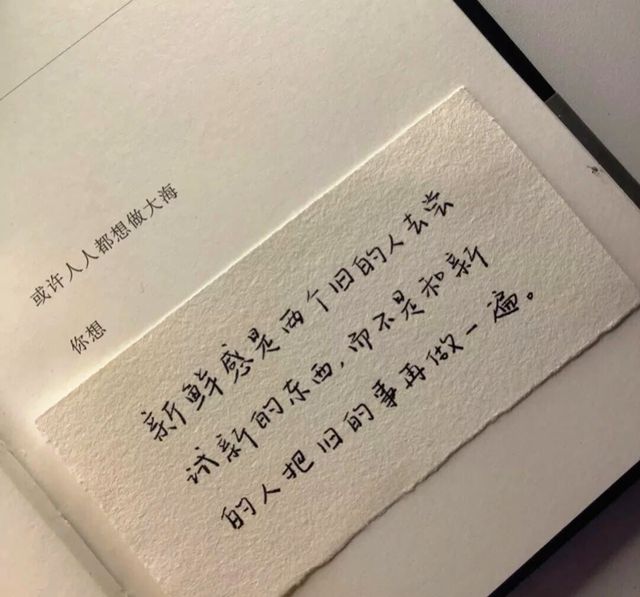 或许人人都想做大海
你想
新鲜感是两个旧的人去尝
试新的东西,而不是和新
的人把旧的事再做一遍。